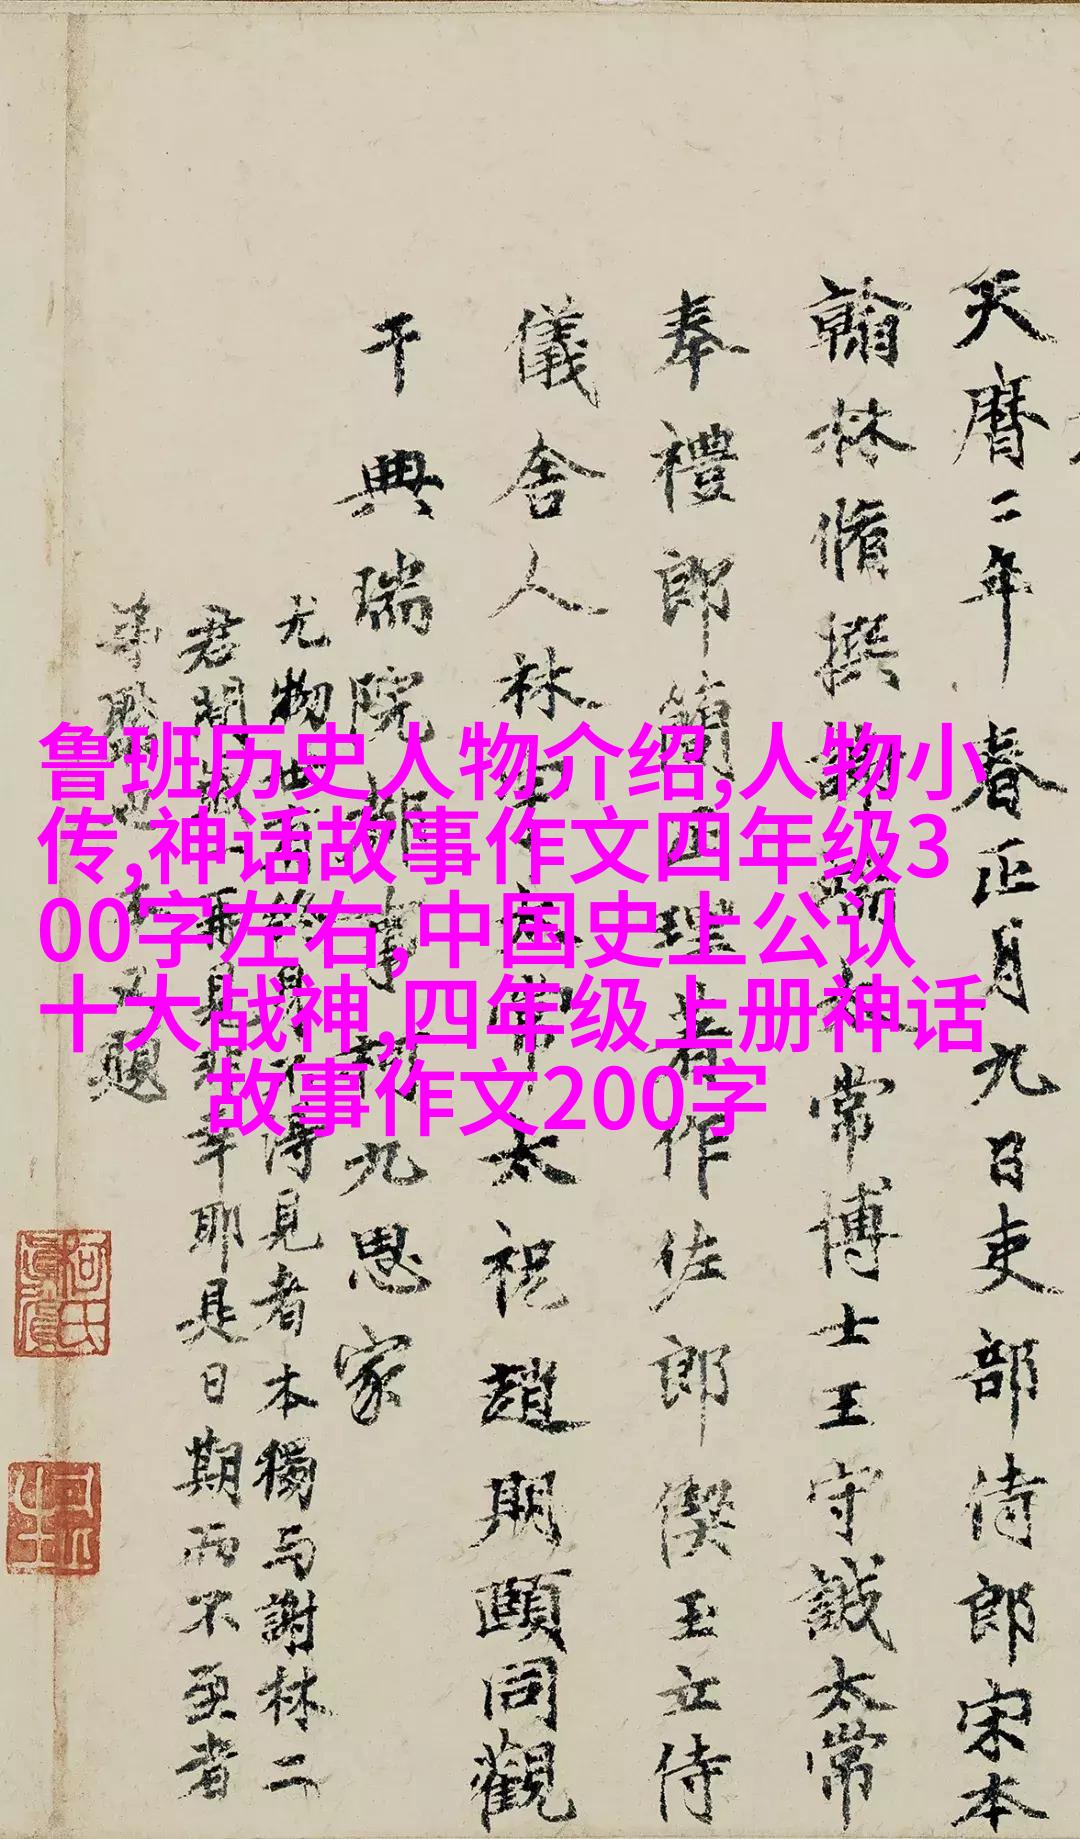 天曆二年春正月九日吏部侍郎宋本
翰林脩撰謝端太常博士王守誠太常
奉禮郎簡正理著作佐郎偰玉立侍
儀舍人林宇太常太祝趙期頤同觀
于典瑞院都事柯九思家
尤物世者終得見者本獨与謝林二
君閒再見非幸耶是日期而不至者
又題
鲁班历史人物介绍,人物小
传,神话故事作文四年级3
00字左右,中国史上公认
十大战神,四年级上册神话
故事作文200字